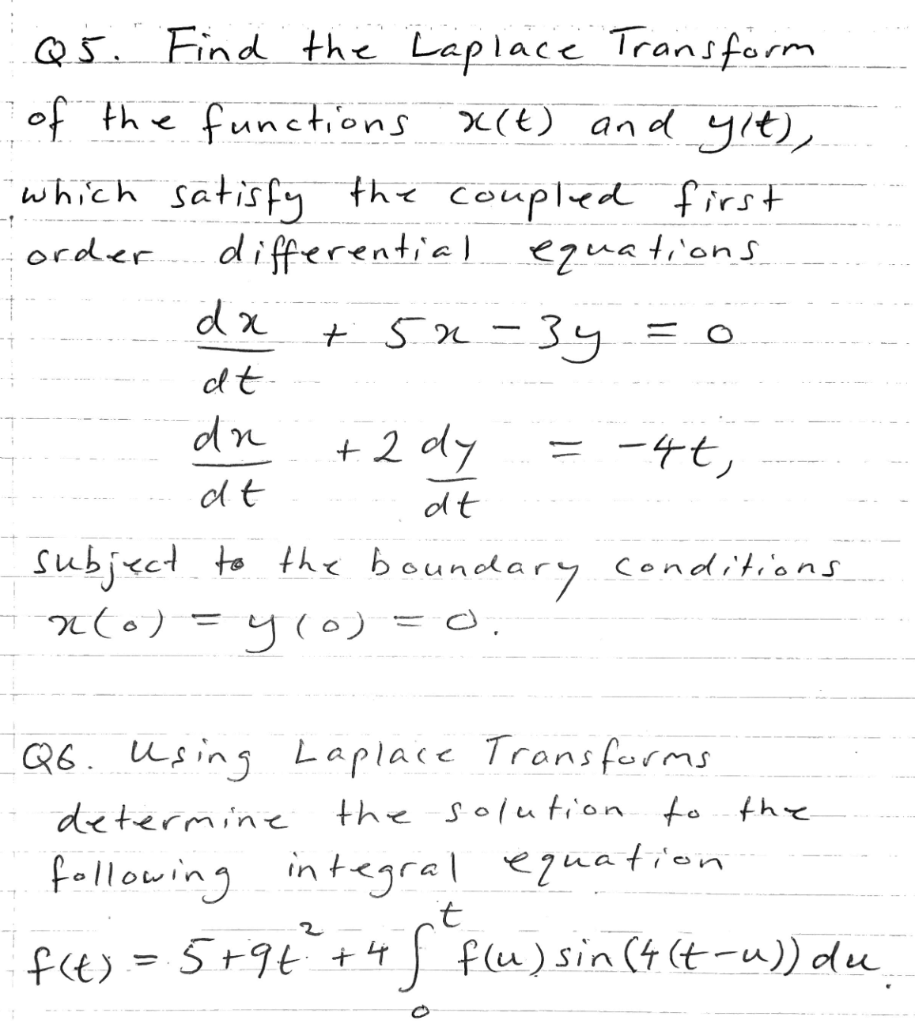 Q5. Find the Laplace Transform
of the functions x(t) and y(t),
which satisfy the coupled first
order differential equations
dx/dt + 5x - 3y = 0
dx/dt + 2 dy/dt = -4t,
subject to the boundary conditions
x(0) = y(0) = 0.
Q6. Using Laplace Transforms
determine the solution to the
following integral equation
f(t) = 5+9t² + 4 ∫₀ᵗ f(u) sin(4(t-u)) du.